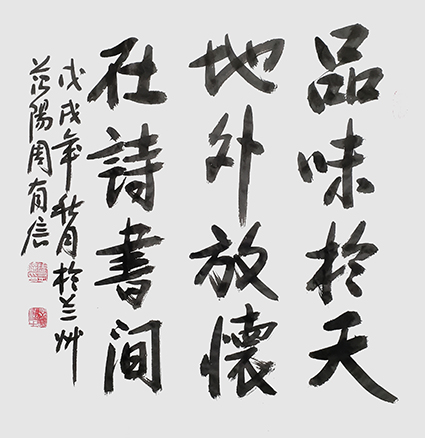 品味於天
地外放懷
在詩書间
戊戌年秋月於兰州
范陽周有辰